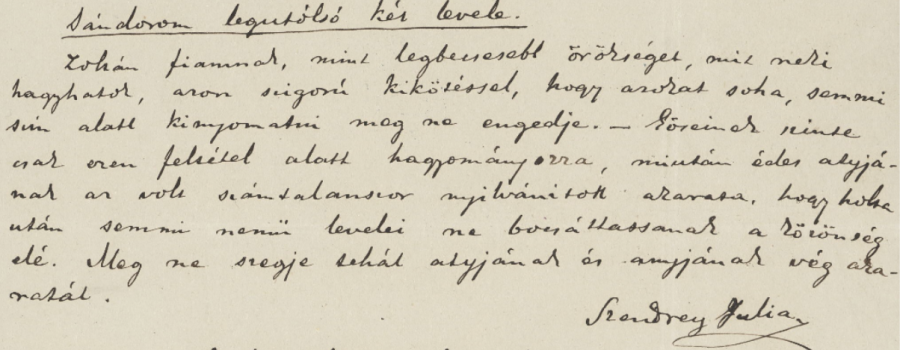 Sándorom legutólsó két levele.
Zoltán fiamnak, mint legbecsesebb örökséget, mit neki
hagyhatok, azon szigorú kikötéssel, hogy azokat soha, semmi
szin alatt kinyomatni meg ne engedje. — Utódainak szinte
csak ezen feltétel alatt hagyományozza, miután édes atyjá-
nak az volt számtalanszor nyilvánított akarata, hogy holta
után semmi nemű levelei ne bocsáttassanak a közönség
elé. Meg ne szegje tehát atyjának és anyjának vég aka-
ratát.
Szendrey Julia